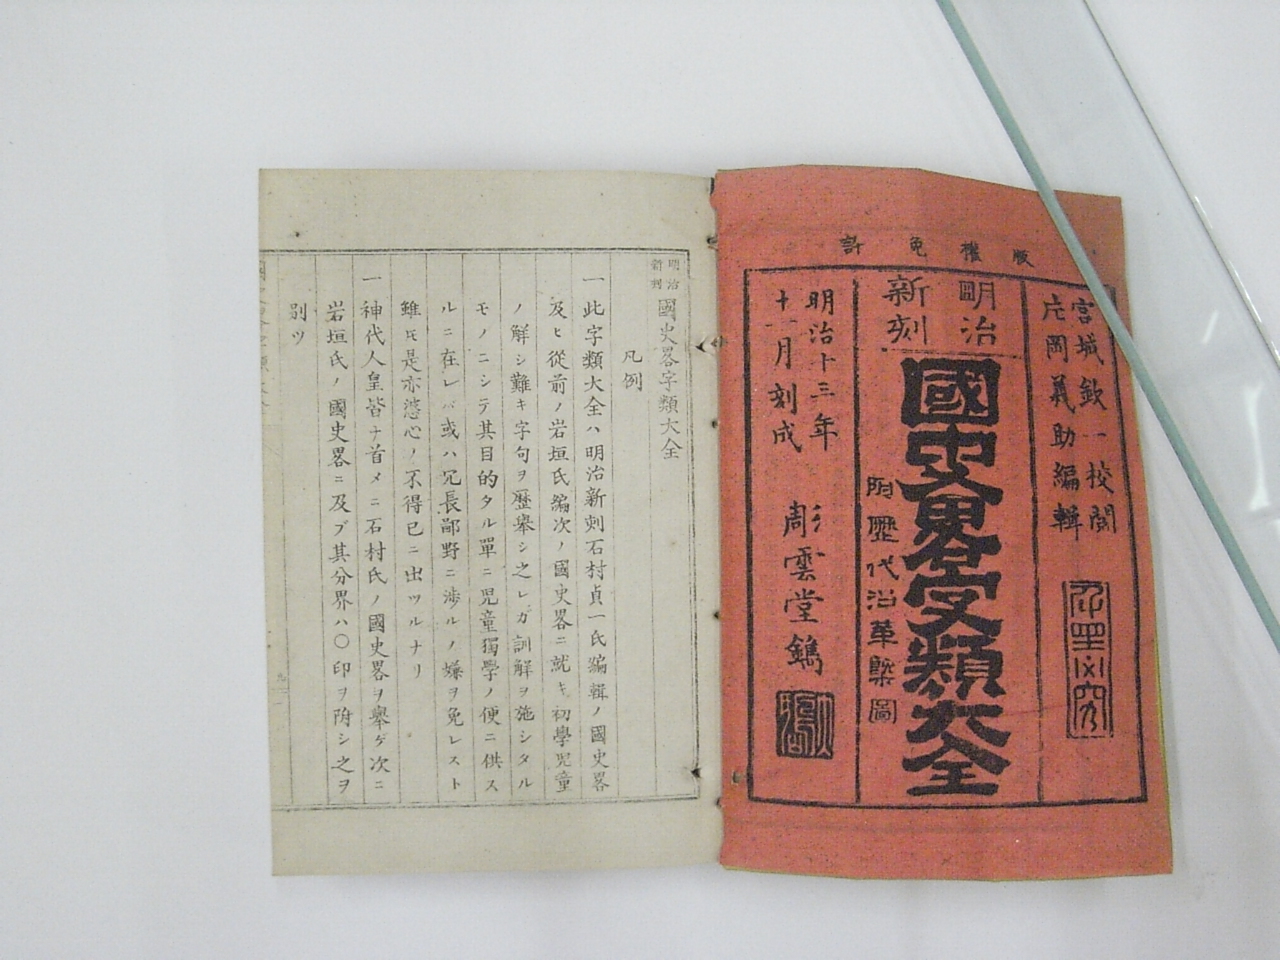 版權免許
宮城欽一校閲
片岡義助編輯
明治
新刻
國史畧字類大全
附歴代沿革槩圖
明治十三年
十一月刻成
彫雲堂鐫
明治
新刻
國史畧字類大全
凡例
一此字類大全ハ明治新刻石村貞一氏編輯ノ國史畧
及ヒ從前ノ岩垣氏編次ノ國史畧ニ就キ初學児童
ノ解シ難キ字句ヲ歴擧シ之レガ訓解ヲ施シタル
モノニシテ其目的タル單ニ児童獨學ノ便ニ供ス
ルニ在レバ或ハ冗長鄙野ニ渉ルノ嫌ヲ免レスト
雖ㇳモ是亦婆心ノ不得已ニ出ツルナリ
一神代人皇皆ナ首メニ石村氏ノ國史畧ヲ擧ゲ次ニ
岩垣氏ノ國史畧ニ及ブ其分界ハ〇印ヲ附シ之ヲ
別ツ